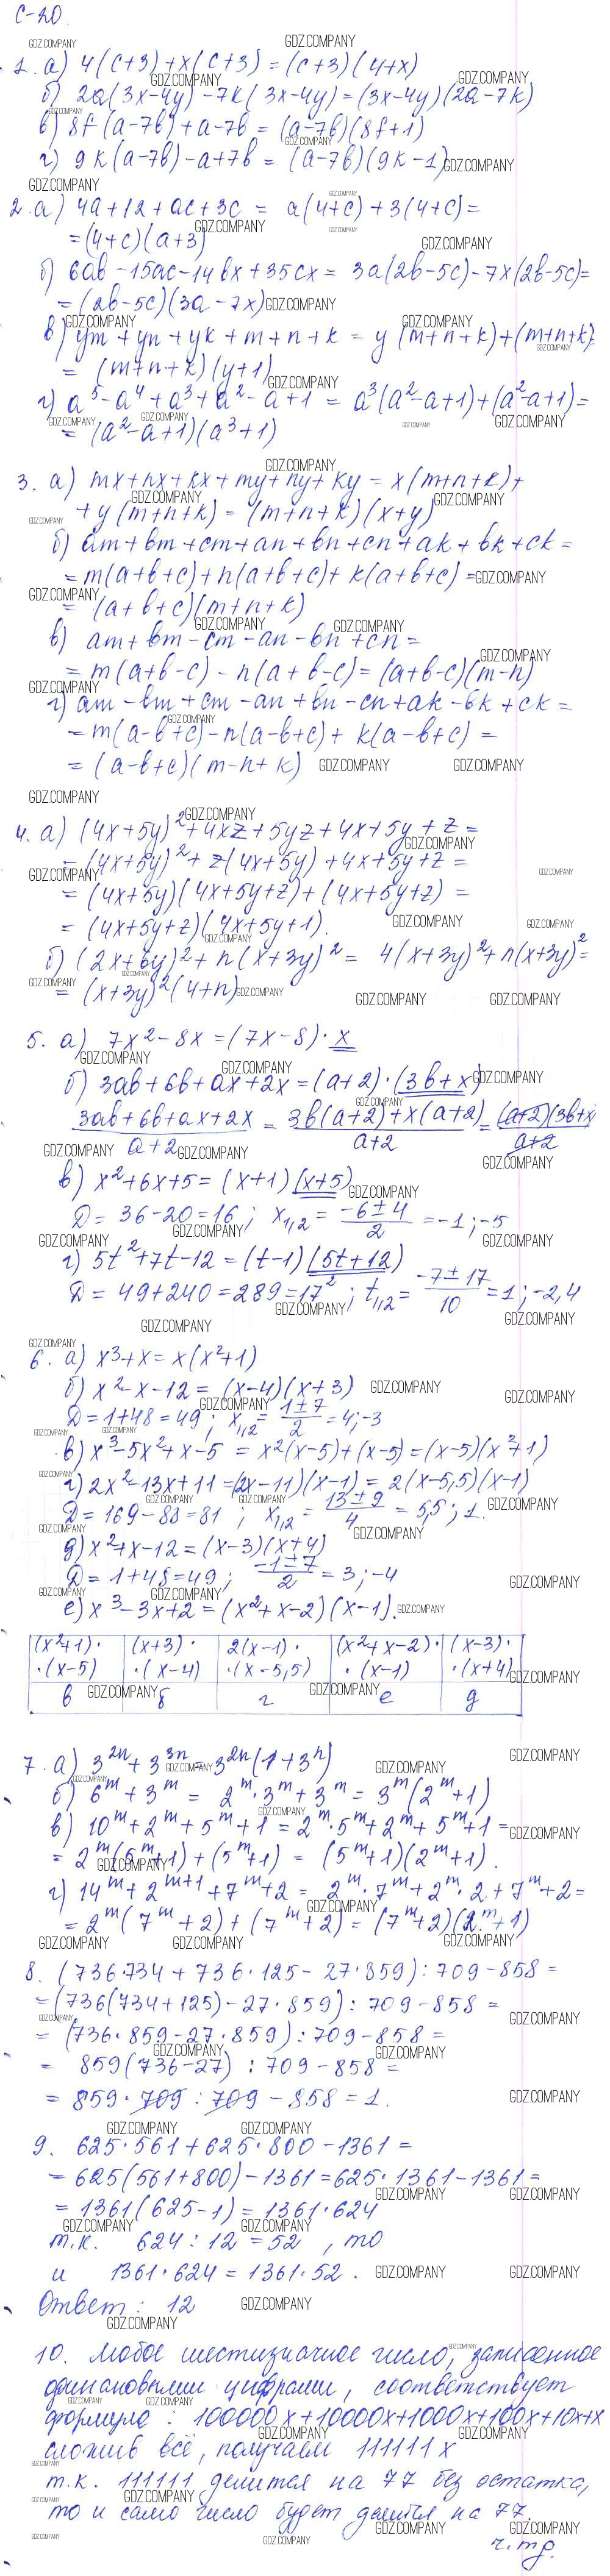 С-20.
1. а) 4(c+3)+x(c+3)=(c+3)(4+x)
б) 2a(3x-4y)-7k(3x-4y)=(3x-4y)(2a-7k)
в) 8f(a-7b)+a-7b=(a-7b)(8f+1)
г) 9k(a-7b)-a+7b=(a-7b)(9k-1)
2. а) 4a+12+ac+3c=a(4+c)+3(4+c)=
=(4+c)(a+3)
б) 6ab-15ac-14bx+35cx=3a(2b-5c)-7x(2b-5c)=
=(2b-5c)(3a-7x)
в) ym+yn+yk+m+n+k=y(m+n+k)+(m+n+k)=
=(m+n+k)(y+1)
г) a⁵-a⁴+a³+a²-a+1=a³(a²-a+1)+(a²-a+1)=
=(a²-a+1)(a³+1)
3. а) mx+nx+kx+my+ny+ky=x(m+n+k)+
+y(m+n+k)=(m+n+k)(x+y)
б) am+bm+cm+an+bn+cn+ak+bk+ck=
=m(a+b+c)+n(a+b+c)+k(a+b+c)=
=(a+b+c)(m+n+k)
в) am+bm-cm-an-bn+cn=
=m(a+b-c)-n(a+b-c)=(a+b-c)(m-n)
г) am-bm+cm-an+bn-cn+ak-bk+ck=
=m(a-b+c)-n(a-b+c)+k(a-b+c)=
=(a-b+c)(m-n+k)
4. а) (4x+5y)²+4xz+5yz+4x+5y+z=
=(4x+5y)²+z(4x+5y)+4x+5y+z=
=(4x+5y)(4x+5y+z)+(4x+5y+z)=
=(4x+5y+z)(4x+5y+1).
б) (2x+6y)²+n(x+3y)²=4(x+3y)²+n(x+3y)²=
=(x+3y)²(4+n)
5. а) 7x²-8x=(7x-8)·x
б) 3ab+6b+ax+2x=(a+2)·(3b+x)
(3ab+6b+ax+2x)/(a+2)=(3b(a+2)+x(a+2))/(a+2)=((a+2)(3b+x)/(a+2)
в) x²+6x+5=(x+1)(x+5)
D=36-20=16; x₁,₂=(-6±4)/2=-1;-5
г) 5t²+7t-12=(t-1)(5t+12)
D=49+240=289=17²; t₁,₂=(-7±17)/10=1;-2,4
6. а) x³+x=x(x²+1)
б) x²-x-12=(x-4)(x+3)
D=1+48=49; x₁,₂=(1±7)/2=4;-3
в) x³-5x²+x-5=x²(x-5)+(x-5)=(x-5)(x²+1)
г) 2x²-13x+11=(2x-11)(x-1)=2(x-5,5)(x-1)
D=169-88=81; x₁,₂=(13±9)/4=5,5;1.
д) x²+x-12=(x-3)(x+4)
D=1+48=49; (-1±7)/2=3;-4
е) x³-3x+2=(x²+x-2)(x-1).
(x²+1)· (x+3)· 2(x-1)· (x²+x-2)· (x-3)·
·(x-5) ·(x-4) ·(x-5,5) ·(x-1) ·(x+4)
в б г е д
7. а) 3²ⁿ+3³ⁿ=3²ⁿ(1+3ⁿ)
б) 6ᵐ+3ᵐ=2ᵐ·3ᵐ+3ᵐ=3ᵐ(2ᵐ+1)
в) 10ᵐ+2ᵐ+5ᵐ+1=2ᵐ·5ᵐ+2ᵐ+5ᵐ+1=
=2ᵐ(5ᵐ+1)+(5ᵐ+1)=(5ᵐ+1)(2ᵐ+1).
г) 14ᵐ+2ᵐ⁺¹+7ᵐ+2=2ᵐ·7ᵐ+2ᵐ·2+7ᵐ+2=
=2ᵐ(7ᵐ+2)+(7ᵐ+2)=(7ᵐ+2)(2ᵐ+1)
8. (736·734+736·125-27·859):709-858=
=(736(734+125)-27·859):709-858=
=(736·859-27·859):709-858=
=859(736-27):709-858=
=859·709:709-858=1.
9. 625·561+625·800-1361=
=625(561+800)-1361=625·1361-1361=
=1361(625-1)=1361·624
т.к. 624:12=52, то
и 1361·624=1361·52.
Ответ: 12
10. Любое шестизначное число, записанное
одинаковыми цифрами, соответствует
формуле: 100000x+10000x+1000x+100x+10x+x
сложив всё, получаем 111111x
т.к. 111111 делится на 77 без остатка,
то и само число будет делится на 77.
ч.тд.
GDZ.COMPANY